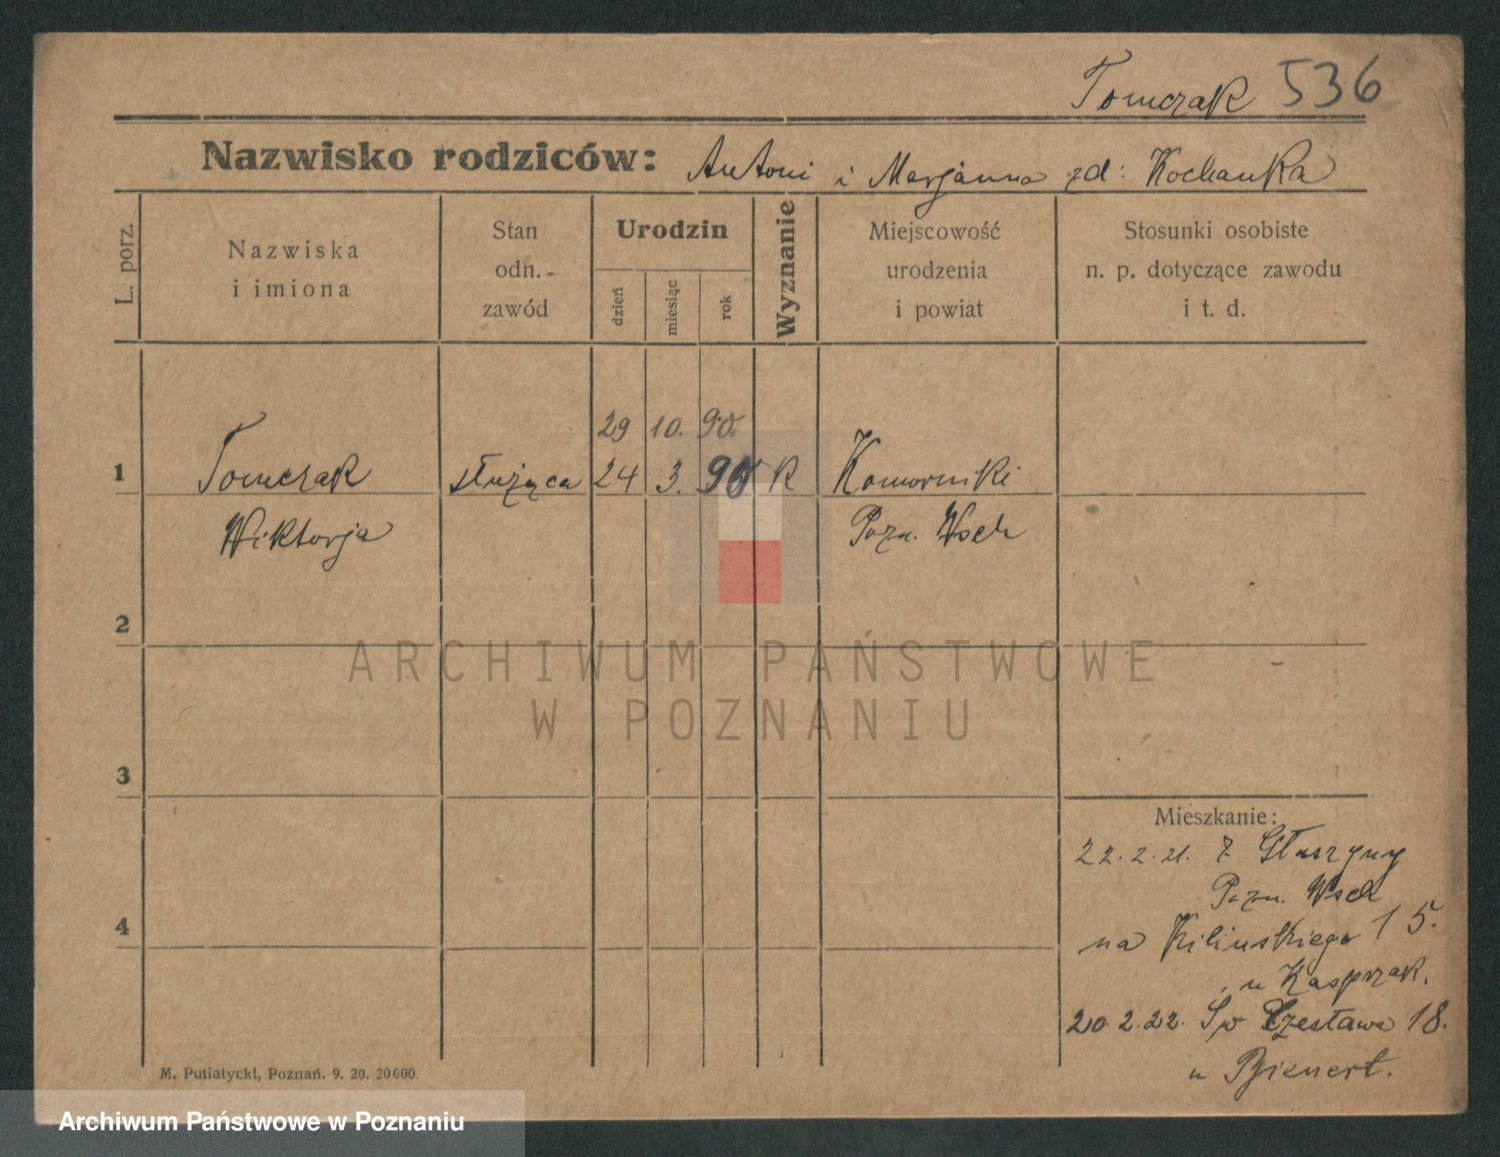 Tomczak 536
Nazwisko rodziców: Antoni i Marjanna zd: Kochanka
L. porz.
Nazwiska
i imiona
Stan
odn.-
zawód
Urodzin
dzień
miesiąc
rok
Wyznanie
Miejscowość
urodzenia
i powiat
Stosunki osobiste
n. p. dotyczące zawodu
i t. d.
29 10. 90.
1 Tomczak służąca 24 3. 90 K Komorniki
Wiktorja Pozn. Wsch
2
ARCHIWUM PAŃSTWOWE
W POZNANIU
3
Mieszkanie:
22.2.21. z Głuszyny
Pozn. Wsch
4
na Kilińskiego 15.
u Kasprzak.
20.2.22. Św Czesława 18.
u Bienert.
M. Putiatycki, Poznań. 9. 20. 20000.
Archiwum Państwowe w Poznaniu